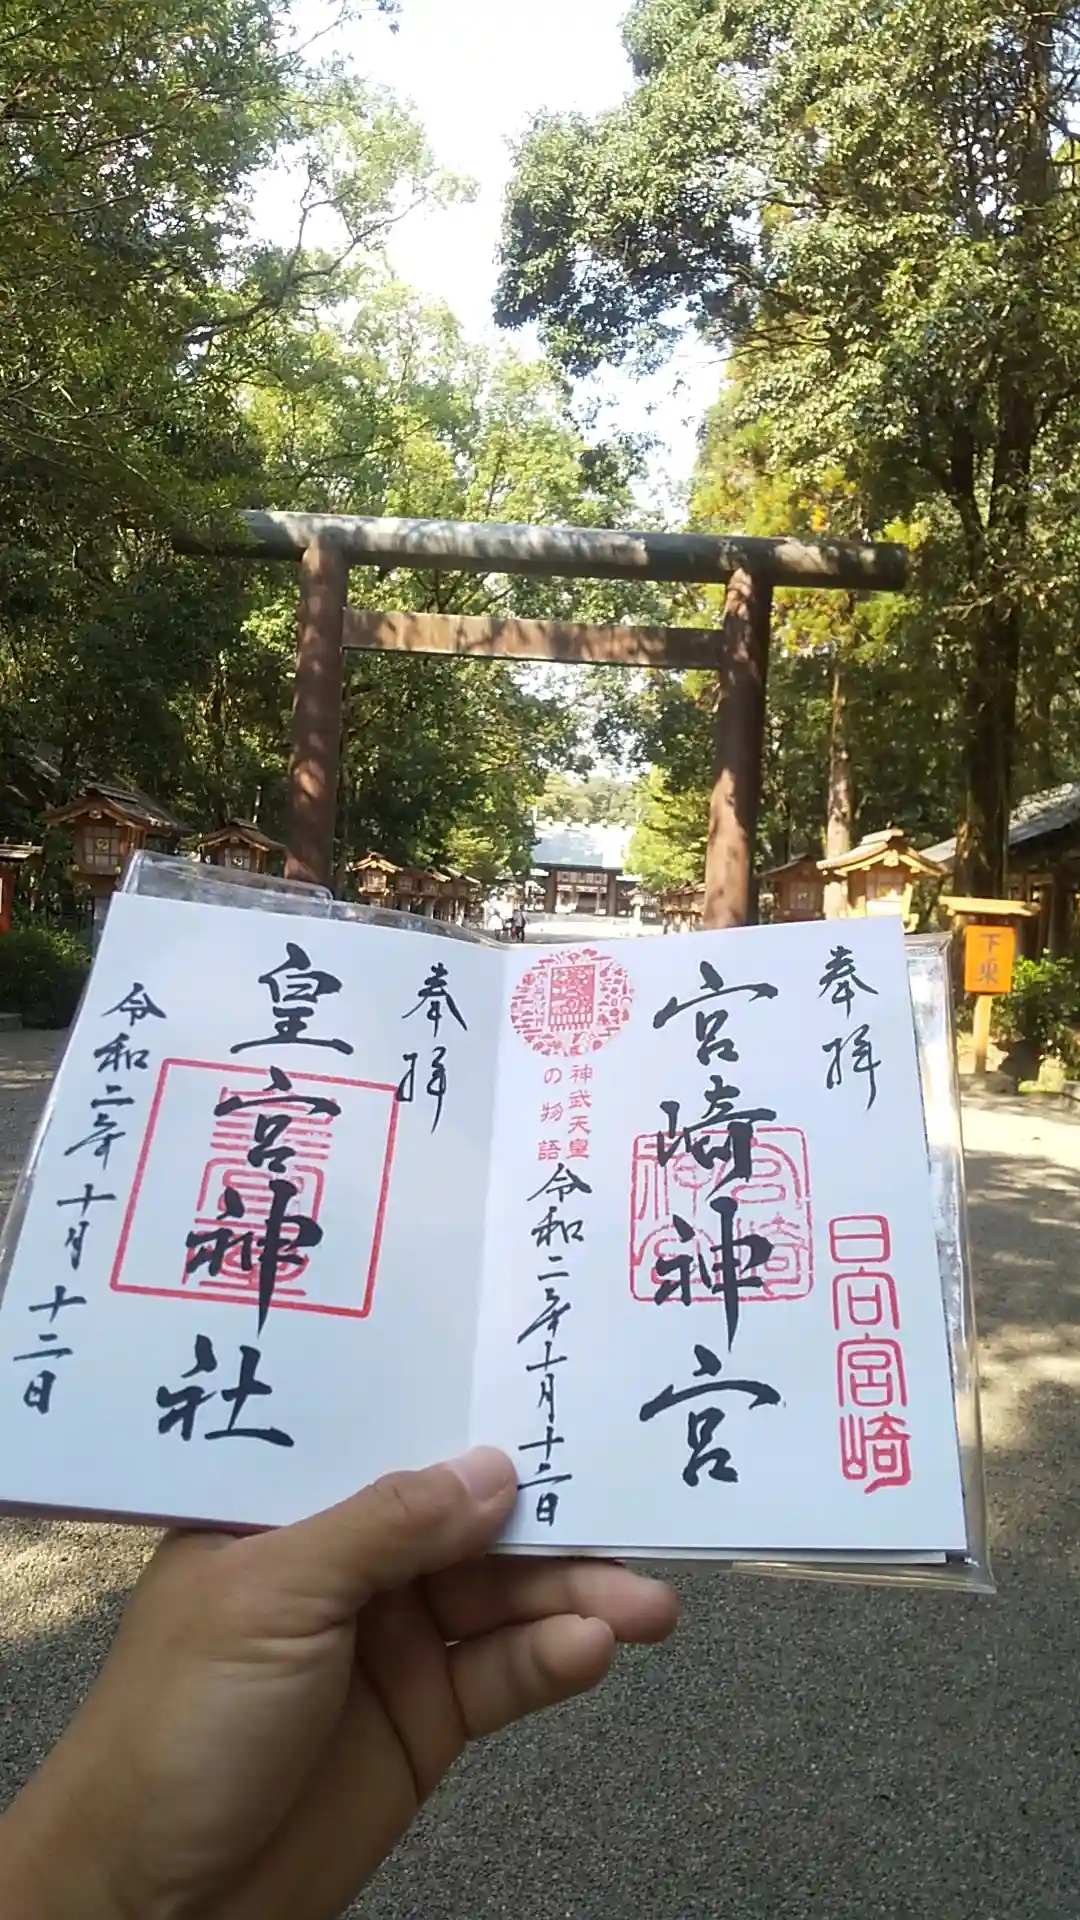 奉拝
日向宮崎
宮崎神宮
宮崎神宮
神武天皇
の物語
令和二年十月十二日
奉拝
皇宮神社
令和二年十月十二日
下乗